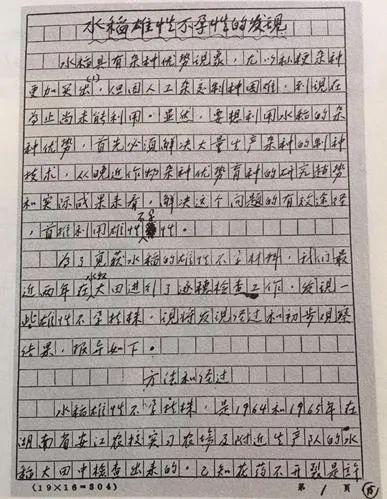 水稻雄性不孕性的发现
水稻具有杂种优势现象，尤以籼粳杂种
更加突出(1)，但因人工杂交制种困难，到现在
为止尚未能利用。显然，要想利用水稻的杂
种优势，首先必须解决大量生产杂种的制种
技术，从晚近作物杂种优势育种的研究趋势
和实际成果来看，解决这个问题的有效途径
，首推利用雄性不孕性。
为了获得水稻的雄性不孕材料，我们最
近两年在水稻大田进行了逐穗检查工作，发现一
些雄性不孕植株，现将发现经过和初步观察
结果，报导如下。
方法和经过
水稻雄性不孕植株，是1964和1965年在
湖南省安江农校实习农场及附近生产队的水
稻大田中检查出来的。已知花药不开裂是许
(19×16=304) 第 1 页